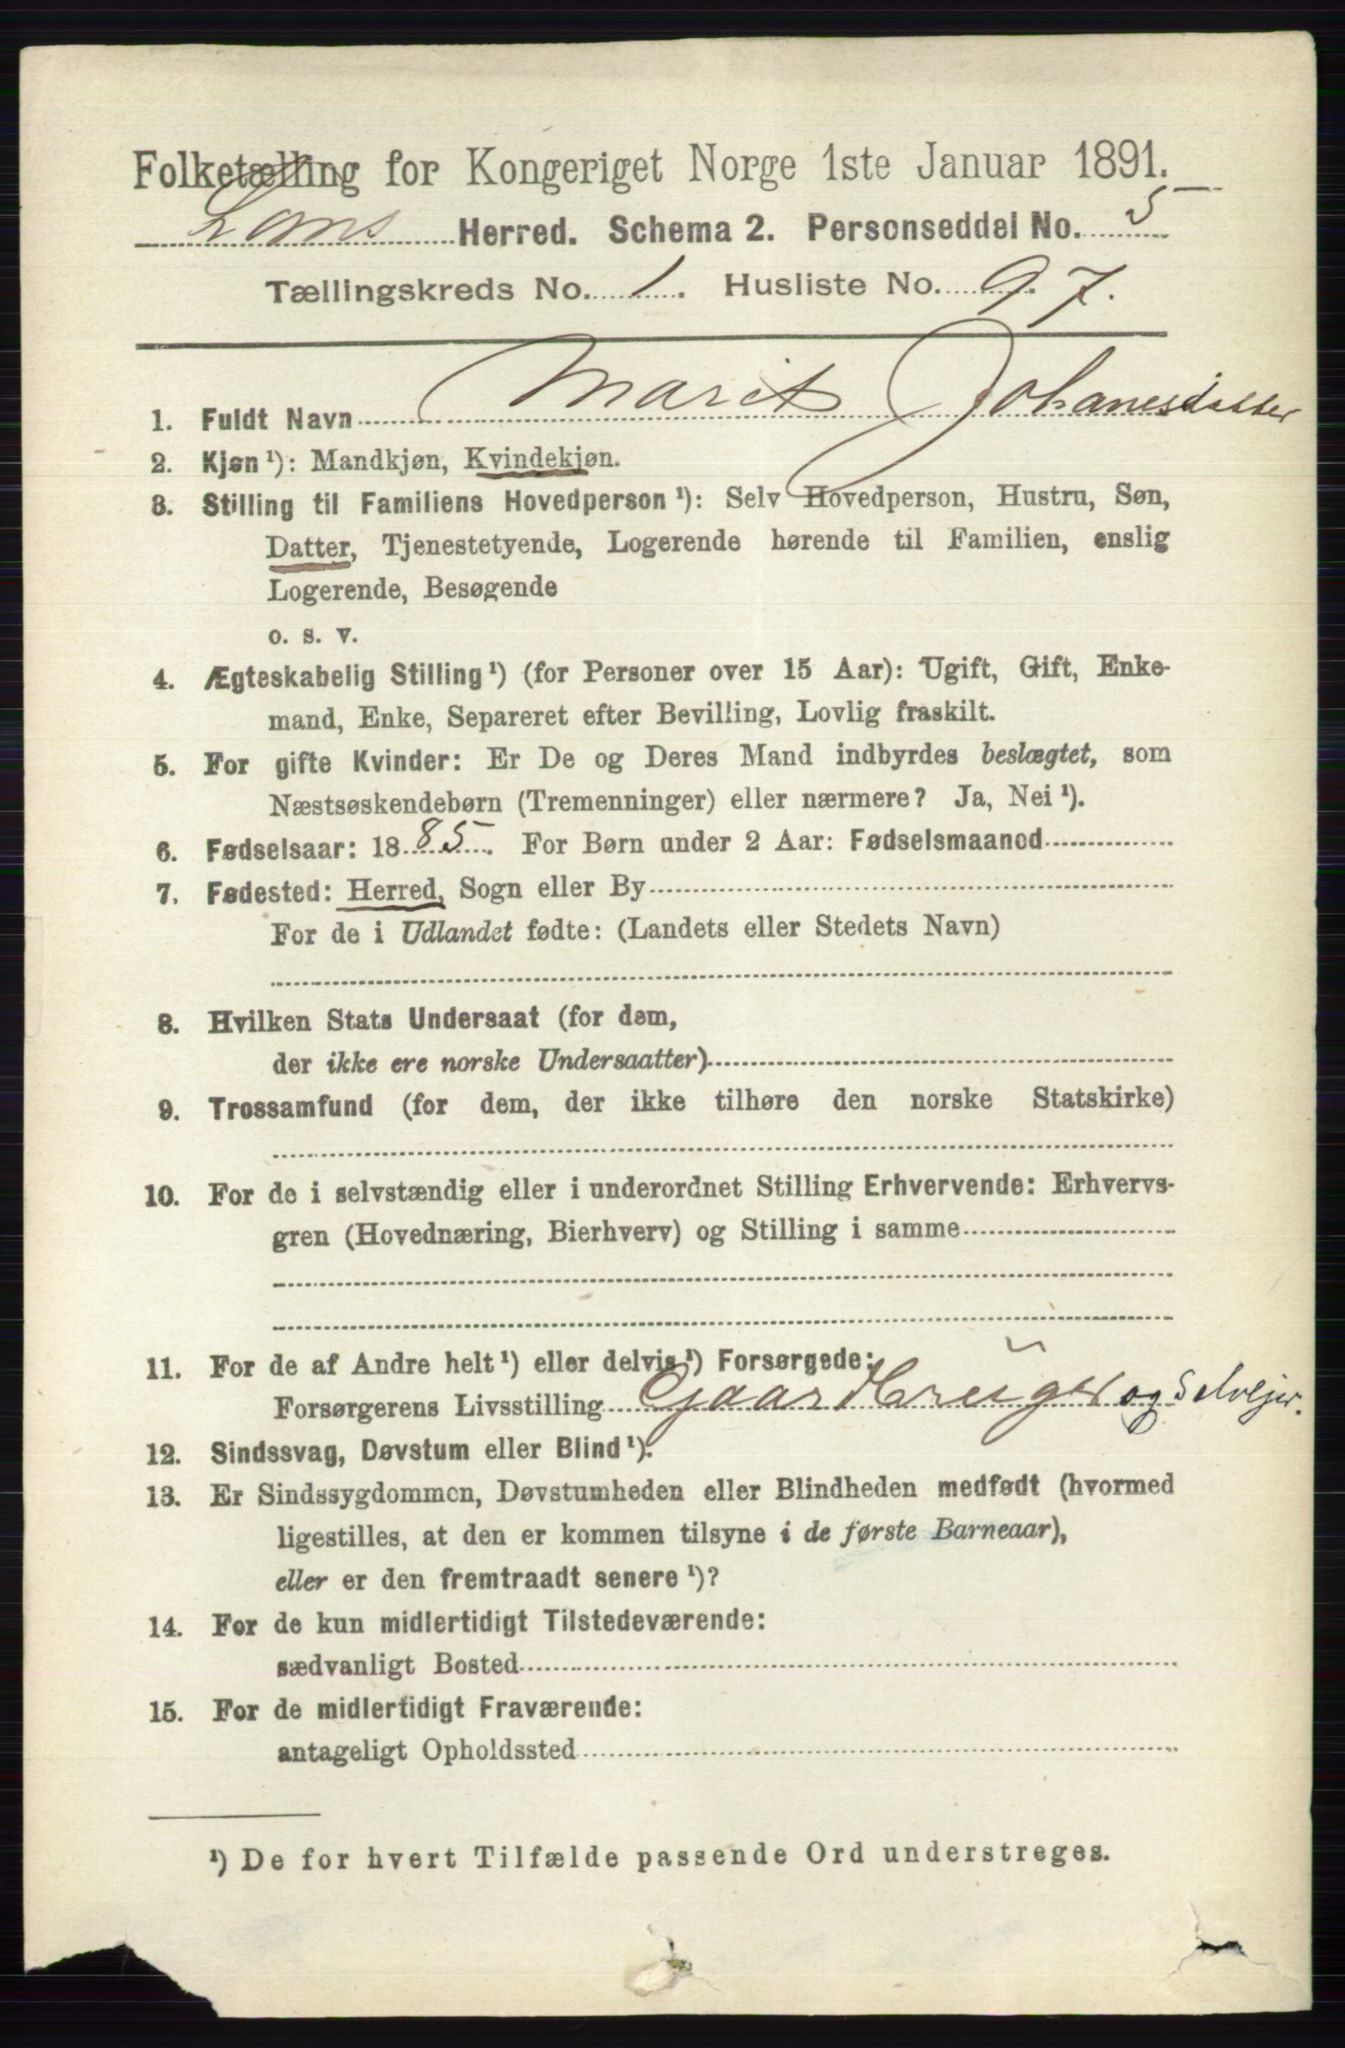 Folketælling for Kongeriget Norge 1ste Januar 1891.
Loms Herred. Schema 2. Personseddel No. 5
Tællingskreds No. 1. Husliste No. 97.
1. Fuldt Navn Marit Johanesdatter
2. Kjøn¹): Mandkjøn, Kvindekjøn.
3. Stilling til Familiens Hovedperson¹): Selv Hovedperson, Hustru, Søn,
Datter, Tjenestetyende, Logerende hørende til Familien, enslig
Logerende, Besøgende
o. s. v.
4. Ægteskabelig Stilling¹) (for Personer over 15 Aar): Ugift, Gift, Enke-
mand, Enke, Separeret efter Bevilling, Lovlig fraskilt.
5. For gifte Kvinder: Er De og Deres Mand indbyrdes beslægtet, som
Næstsøskendebørn (Tremenninger) eller nærmere? Ja, Nei¹).
6. Fødselsaar: 1885. For Børn under 2 Aar: Fødselsmaaned
7. Fødested: Herred, Sogn eller By
For de i Udlandet fødte: (Landets eller Stedets Navn)
8. Hvilken Stats Undersaat (for dem,
der ikke ere norske Undersaatter)
9. Trossamfund (for dem, der ikke tilhøre den norske Statskirke)
10. For de i selvstændig eller i underordnet Stilling Erhvervende: Erhvervs-
gren (Hovednæring, Bierhverv) og Stilling i samme
11. For de af Andre helt¹) eller delvis¹) Forsørgede:
Forsørgerens Livsstilling Gaardbruger og Selvejer.
12. Sindssvag, Døvstum eller Blind¹).
13. Er Sindssygdommen, Døvstumheden eller Blindheden medfødt (hvormed
ligestilles, at den er kommen tilsyne i de første Barneaar),
eller er den fremtraadt senere¹)?
14. For de kun midlertidigt Tilstedeværende:
sædvanligt Bosted
15. For de midlertidigt Fraværende:
antageligt Opholdssted
¹) De for hvert Tilfælde passende Ord understreges.